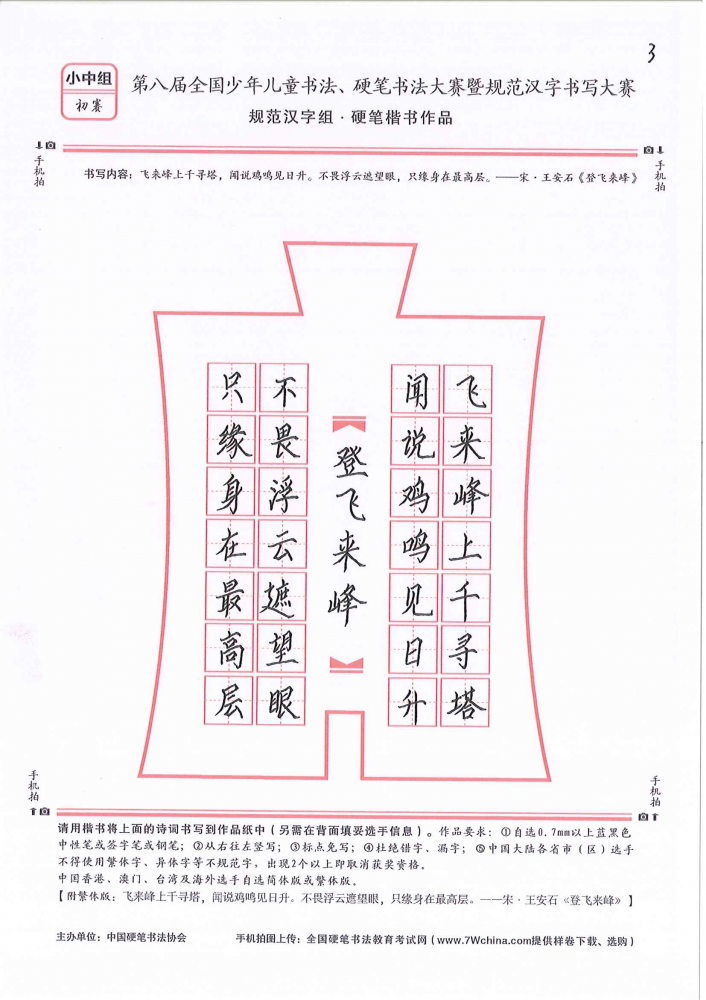 3
小中组
初赛
第八届全国少年儿童书法、硬笔书法大赛暨规范汉字书写大赛
规范汉字组·硬笔楷书作品
手机拍
手机拍
书写内容：飞来峰上千寻塔，闻说鸡鸣见日升。不畏浮云遮望眼，只缘身在最高层。——宋·王安石《登飞来峰》
飞来峰上千寻塔
闻说鸡鸣见日升
登飞来峰
不畏浮云遮望眼
只缘身在最高层
手机拍
手机拍
请用楷书将上面的诗词书写到作品纸中（另需在背面填妥选手信息）。作品要求：①自选0.7mm以上蓝黑色
中性笔或签字笔或钢笔；②从右往左竖写；③标点免写；④杜绝错字、漏字；⑤中国大陆各省市（区）选手
不得使用繁体字、异体字等不规范字，出现2个以上即取消获奖资格。
中国香港、澳门、台湾及海外选手自选简体版或繁体版。
【附繁体版：飞来峰上千寻塔，闻说鸡鸣见日升。不畏浮云遮望眼，只缘身在最高层。——宋·王安石《登飞来峰》】
主办单位：中国硬笔书法协会
手机拍图上传：全国硬笔书法教育考试网（www.7Wchina.com提供样卷下载、选购）